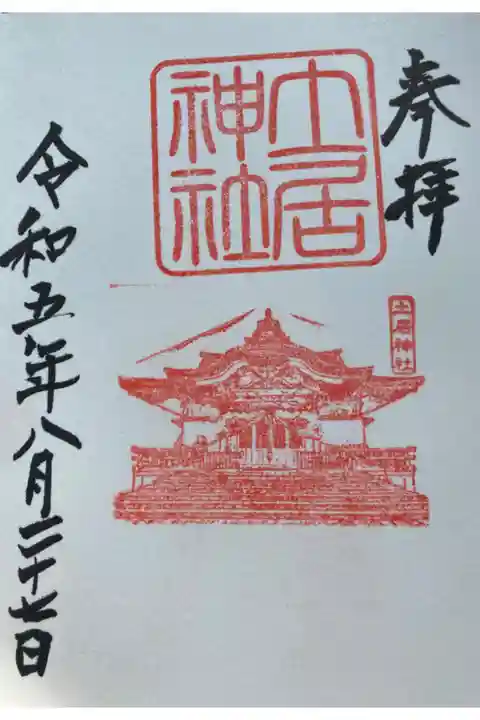 奉拝
土居
神社
土居神社
令和五年八月二十七日